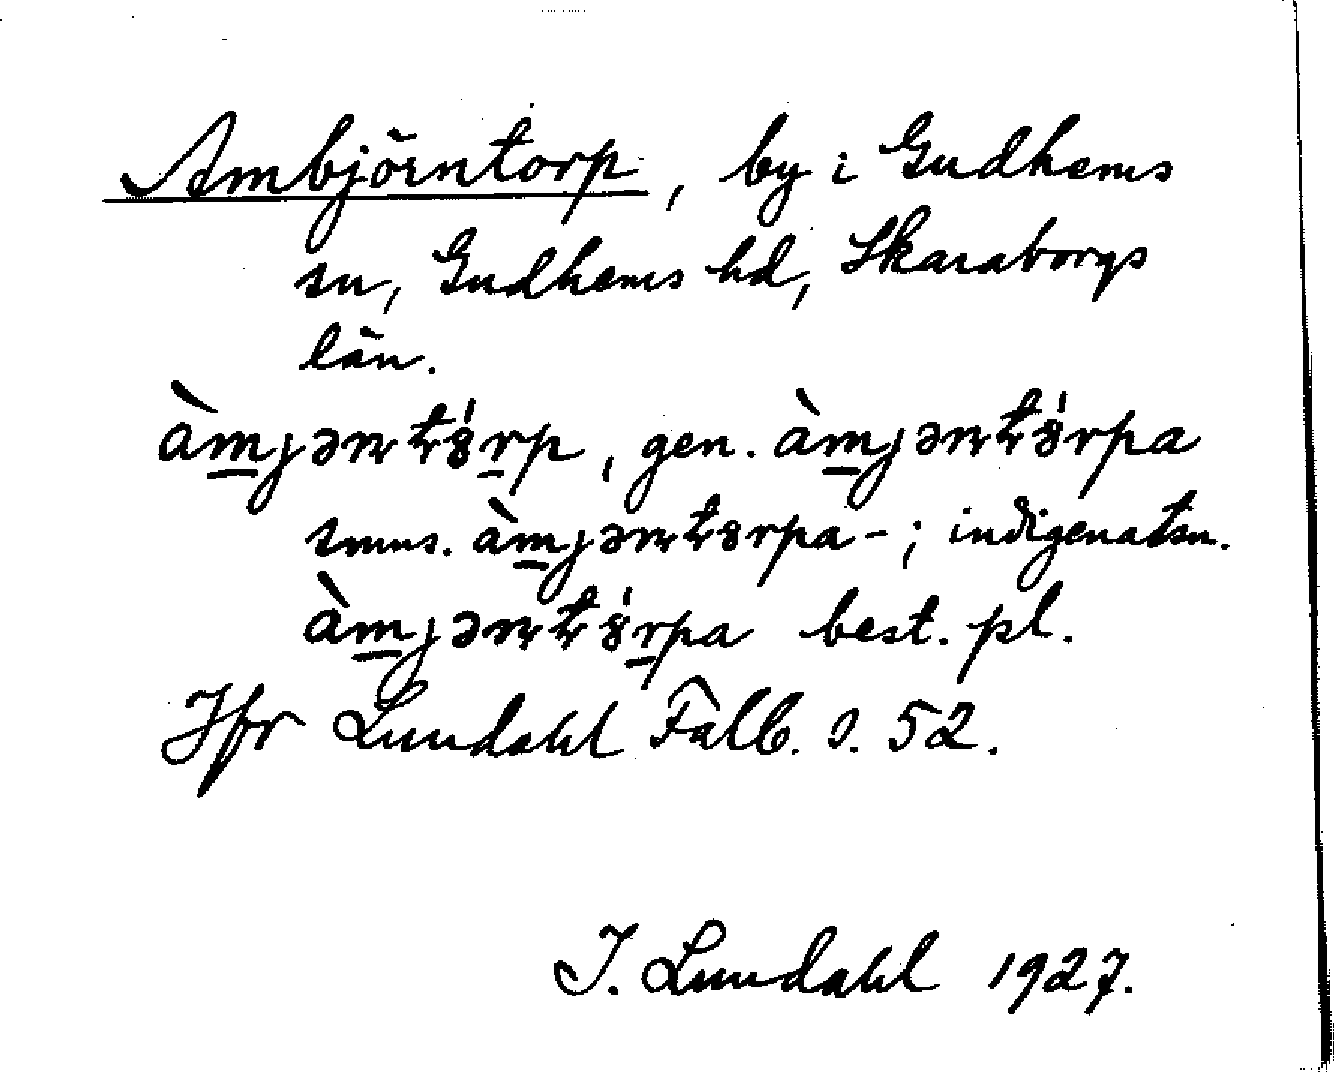 Ambjörntorp, by i Gudhems
sn, Gudhems hd, Skaraborgs
län.
àm̲jən tȣ́r̲p, gen. àm̲jən tȣ́rpa
smns. àm̲jən tȣrpa-; indigenatsn.
àm̲jən tȣ́r̲pa best. pl.
Jfr Lundahl Falb. s. 52.
I. Lundahl 1927.